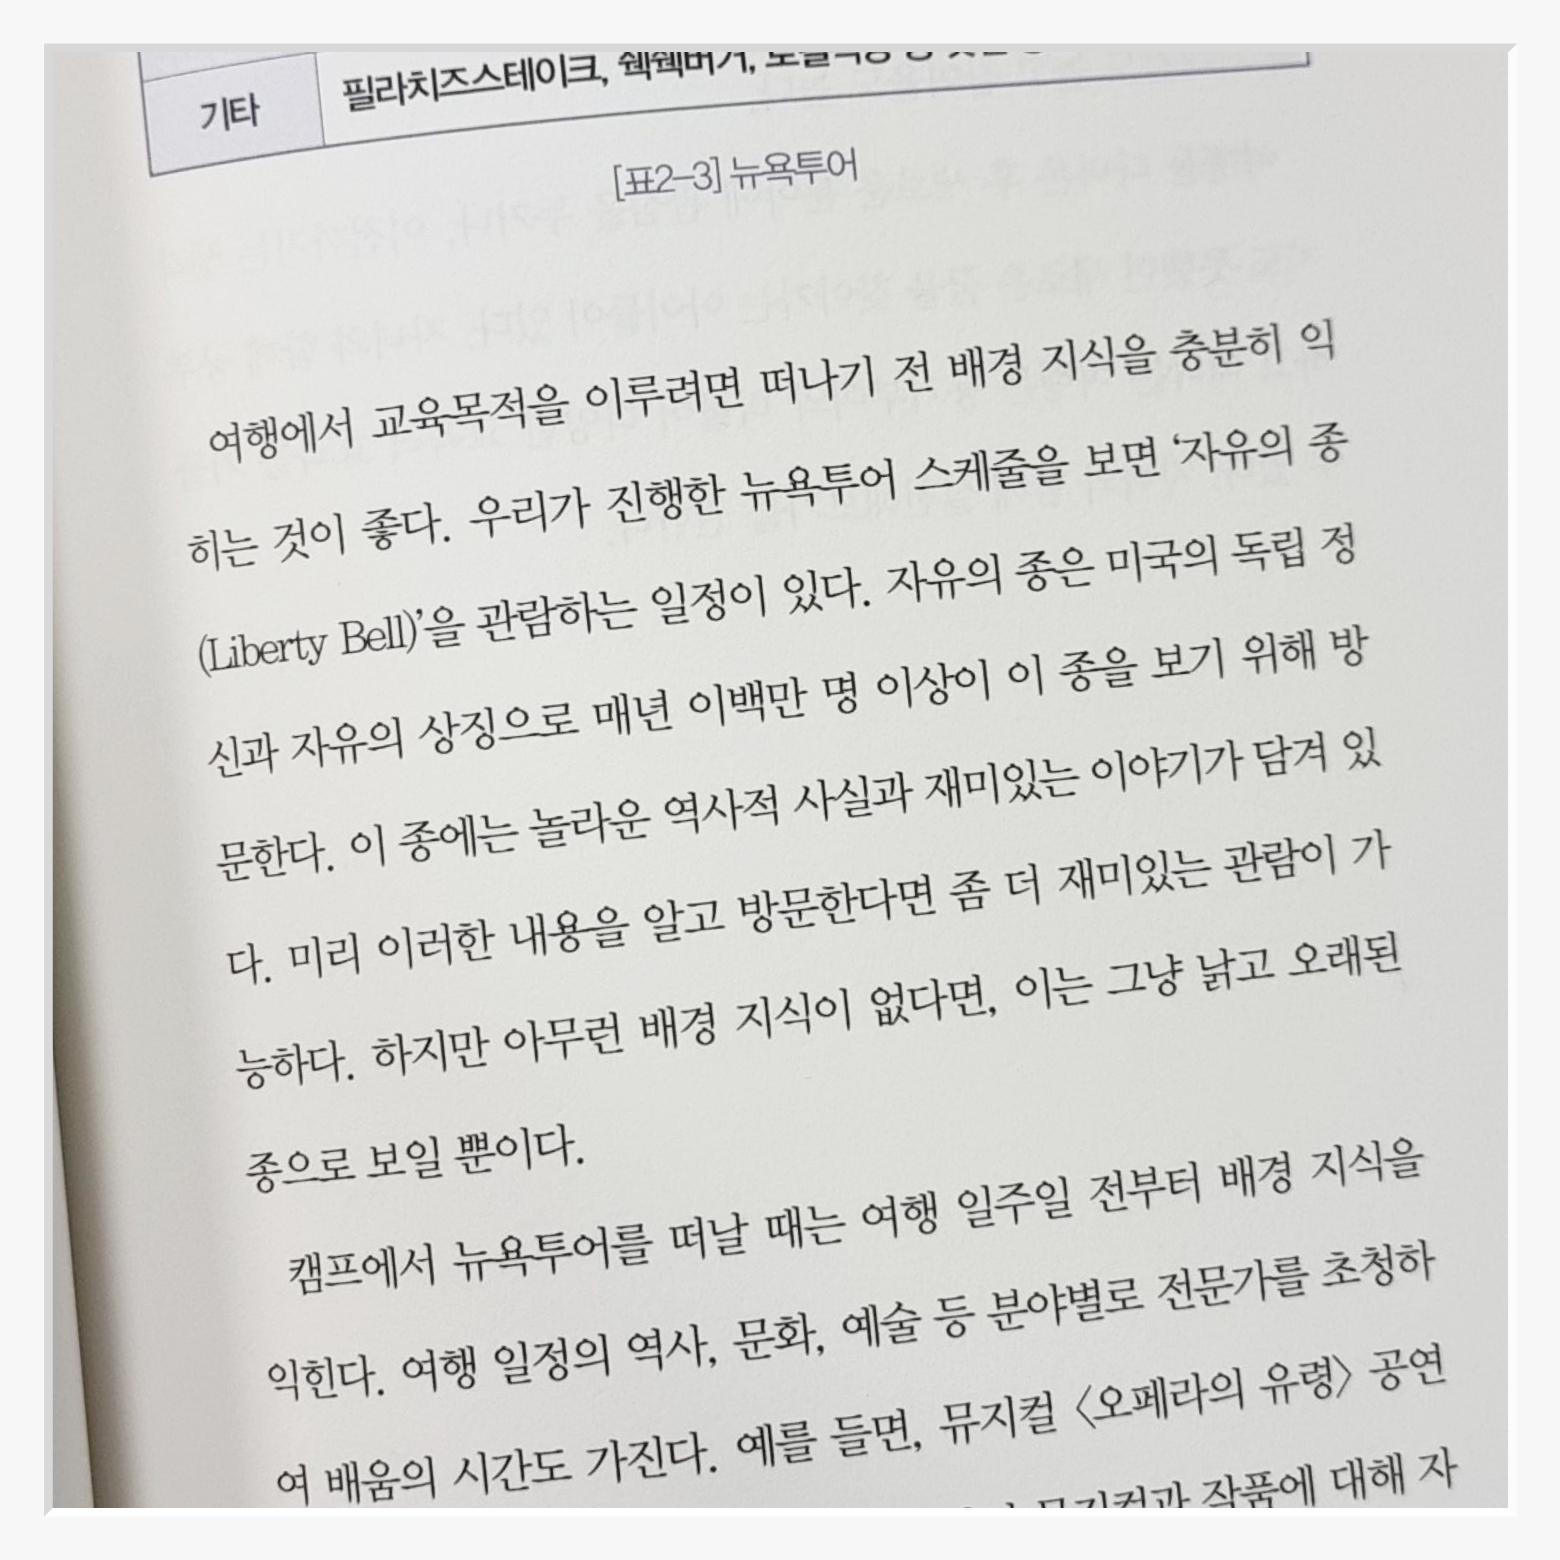 기타
필라치즈스테이크, 쉑쉑버거,
[표2-3] 뉴욕투어
여행에서 교육목적을 이루려면 떠나기 전 배경 지식을 충분히 익
히는 것이 좋다. 우리가 진행한 뉴욕투어 스케줄을 보면 ‘자유의 종
(Liberty Bell)’을 관람하는 일정이 있다. 자유의 종은 미국의 독립 정
신과 자유의 상징으로 매년 이백만 명 이상이 이 종을 보기 위해 방
문한다. 이 종에는 놀라운 역사적 사실과 재미있는 이야기가 담겨 있
다. 미리 이러한 내용을 알고 방문한다면 좀 더 재미있는 관람이 가
능하다. 하지만 아무런 배경 지식이 없다면, 이는 그냥 낡고 오래된
종으로 보일 뿐이다.
캠프에서 뉴욕투어를 떠날 때는 여행 일주일 전부터 배경 지식을
익힌다. 여행 일정의 역사, 문화, 예술 등 분야별로 전문가를 초청하
여 배움의 시간도 가진다. 예를 들면, 뮤지컬 〈오페라의 유령〉 공연
뮤지컬과 작품에 대해 자